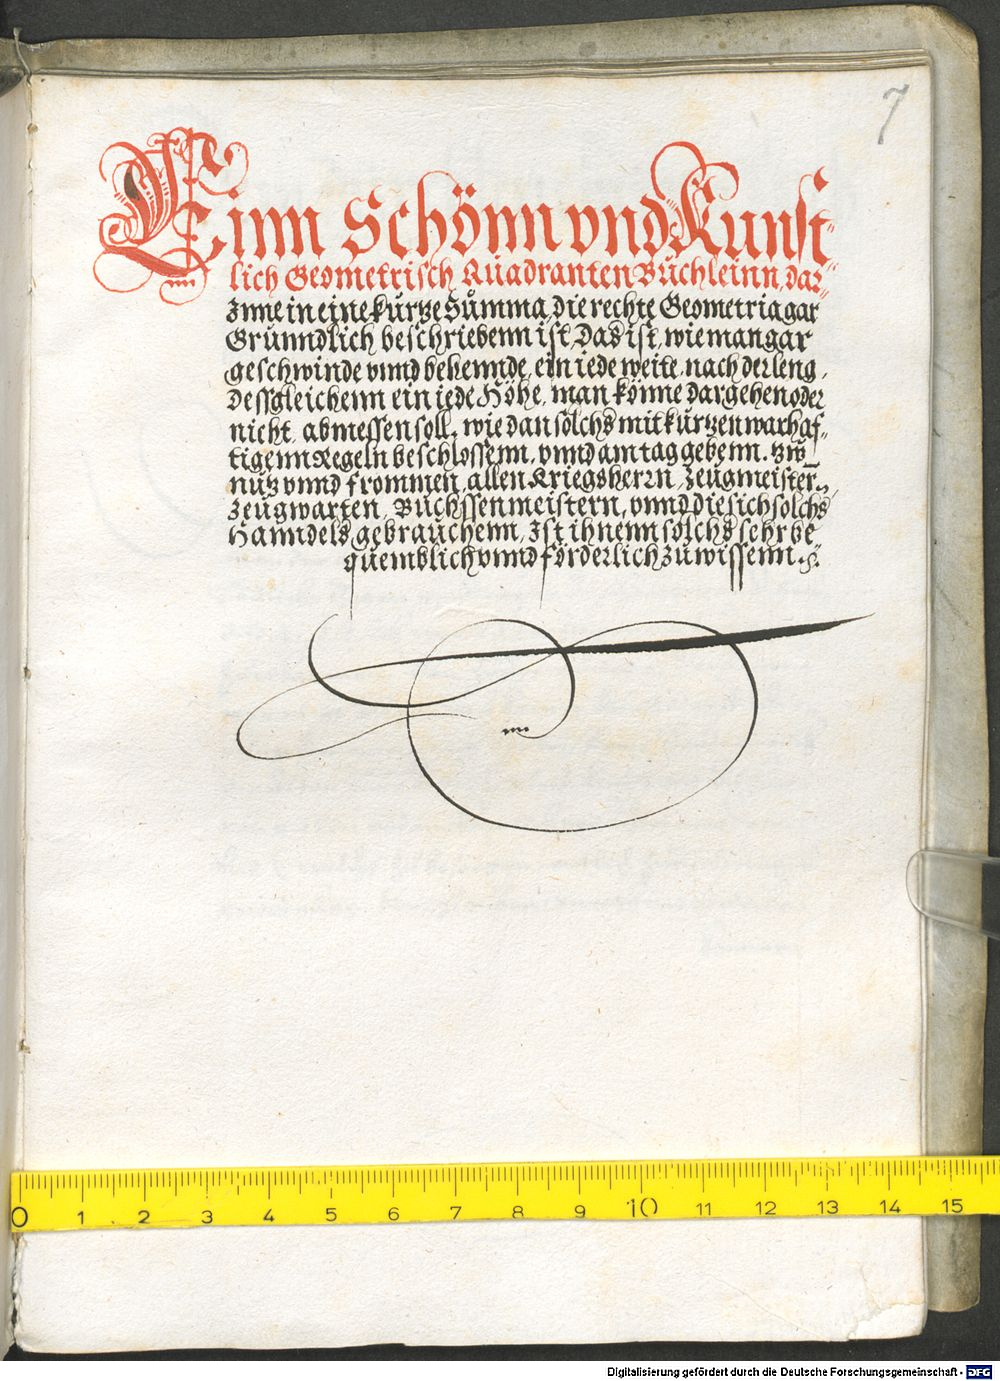 7
Einn Schönn vnd Kunst-
lich Geometrisch Quadranten Büchleinn, dar-
Inne in eine kurtze Summa, die rechte Geometria gar
Grunndlich beschriebenn ist, Das ist, wie man gar
geschwinde vnnd behennde, ein iede weite, nach der leng,
Dessgleichenn ein iede Höhe, man könne dar gehen oder
nicht, abmessen soll, wie dan solchs mit kurtzen warhaf-
tigenn Regeln beschlossenn, vnnd am tag gebenn. zw
nutz vnnd frommen, allen Kriegsherrn, Zeugmeister,
Zeugwarten, Buchssenmeistern, vnnd die sich solchs
Hanndels gebrauchenn, Ist ihnenn solchs sehr be
quemblich vnnd förderlich zu wissenn.
0 1 2 3 4 5 6 7 8 9 10 11 12 13 14 15
Digitalisierung gefördert durch die Deutsche Forschungsgemeinschaft - DFG